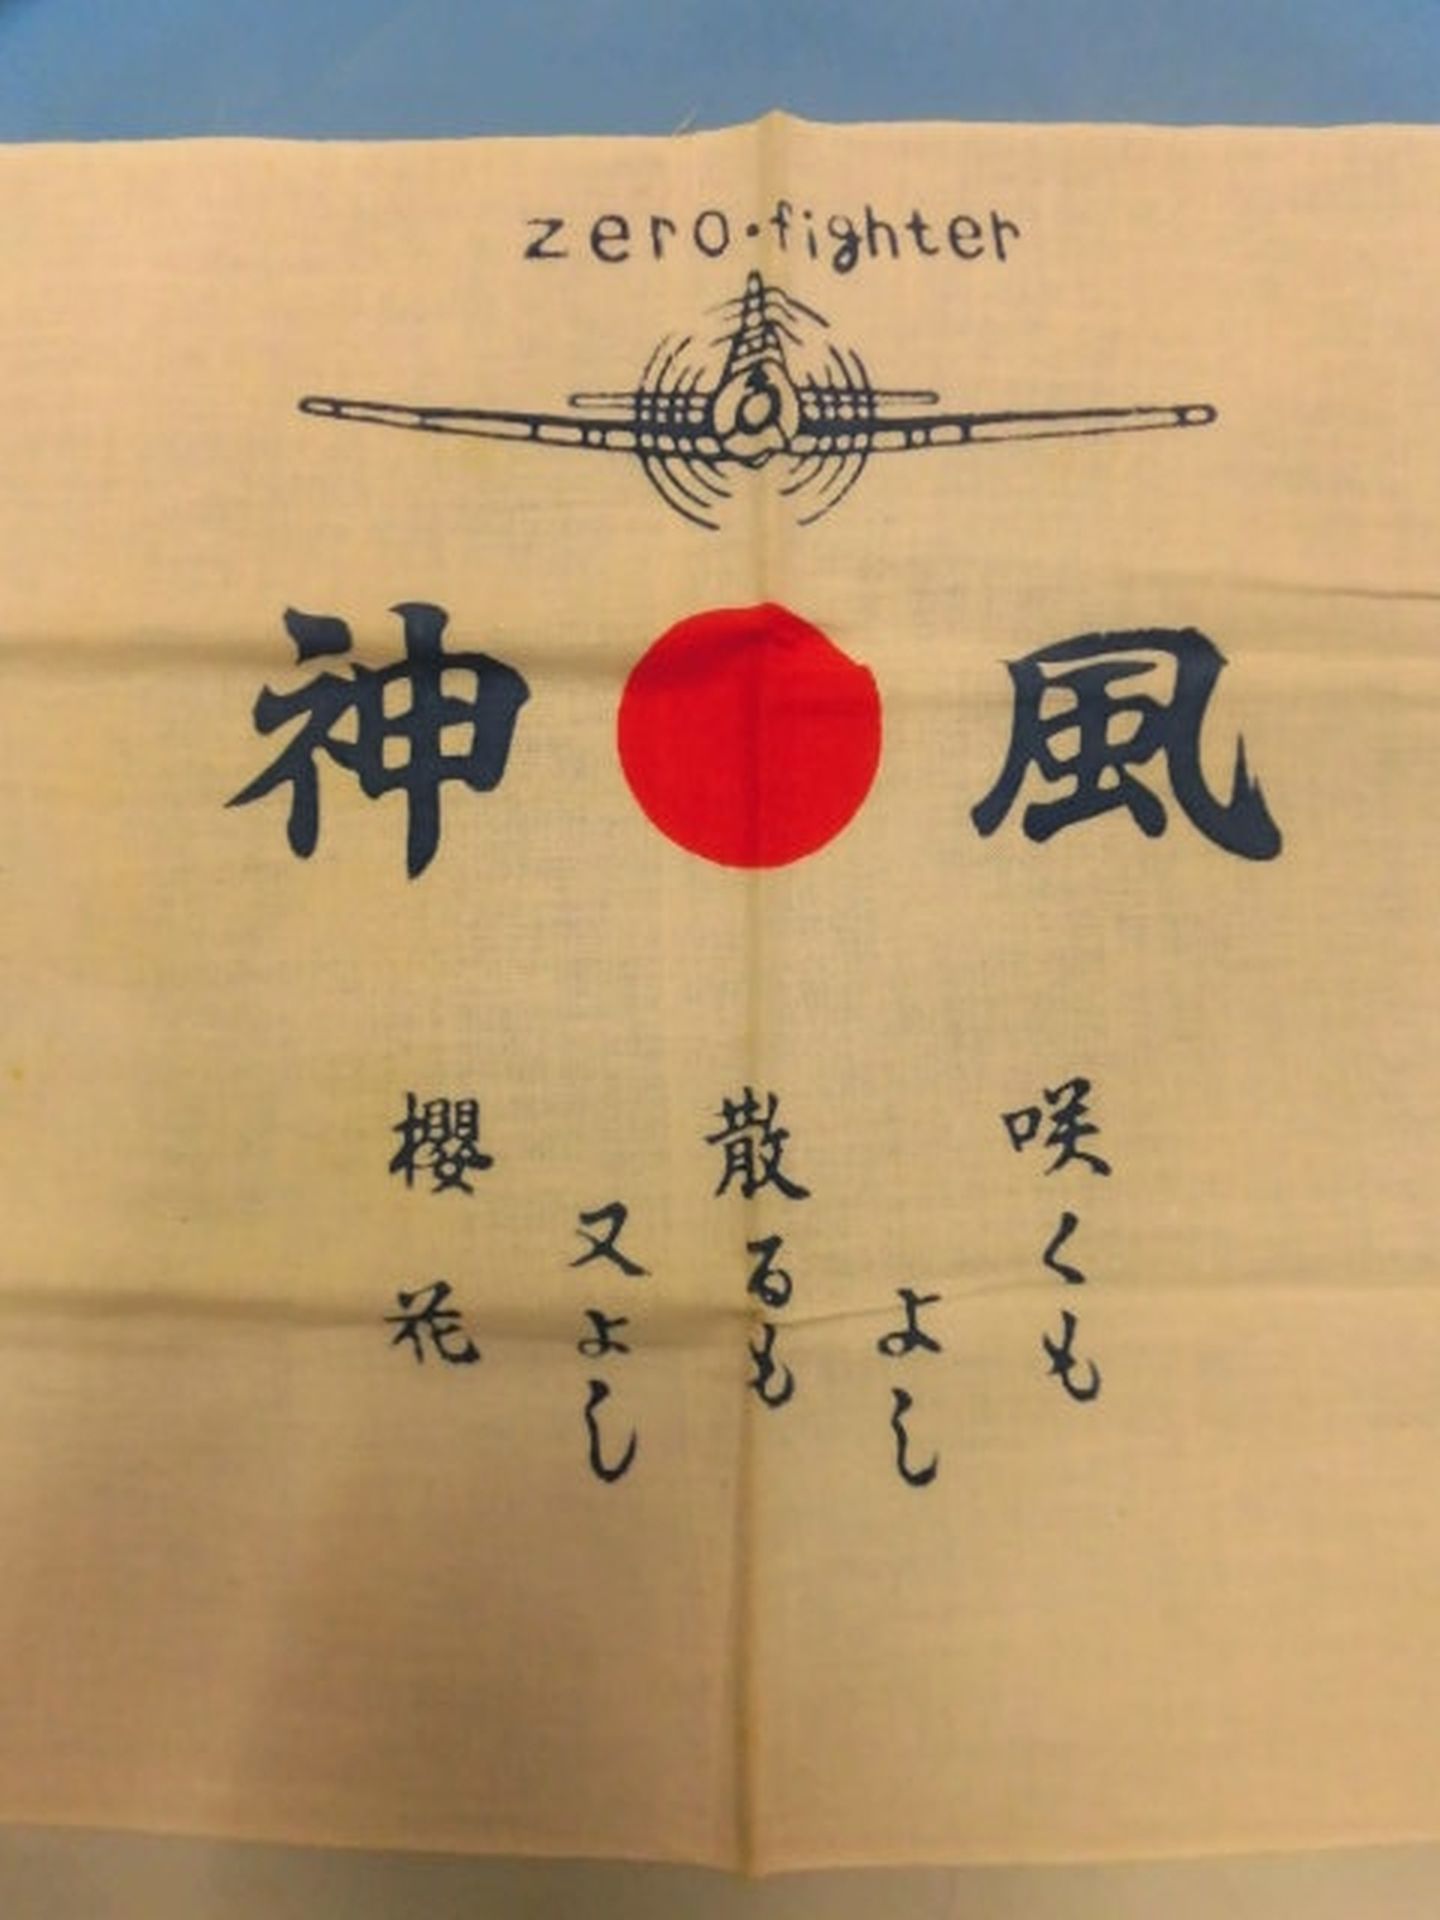 zero・fighter
神風
咲くも
よし
散るも
又よし
櫻花